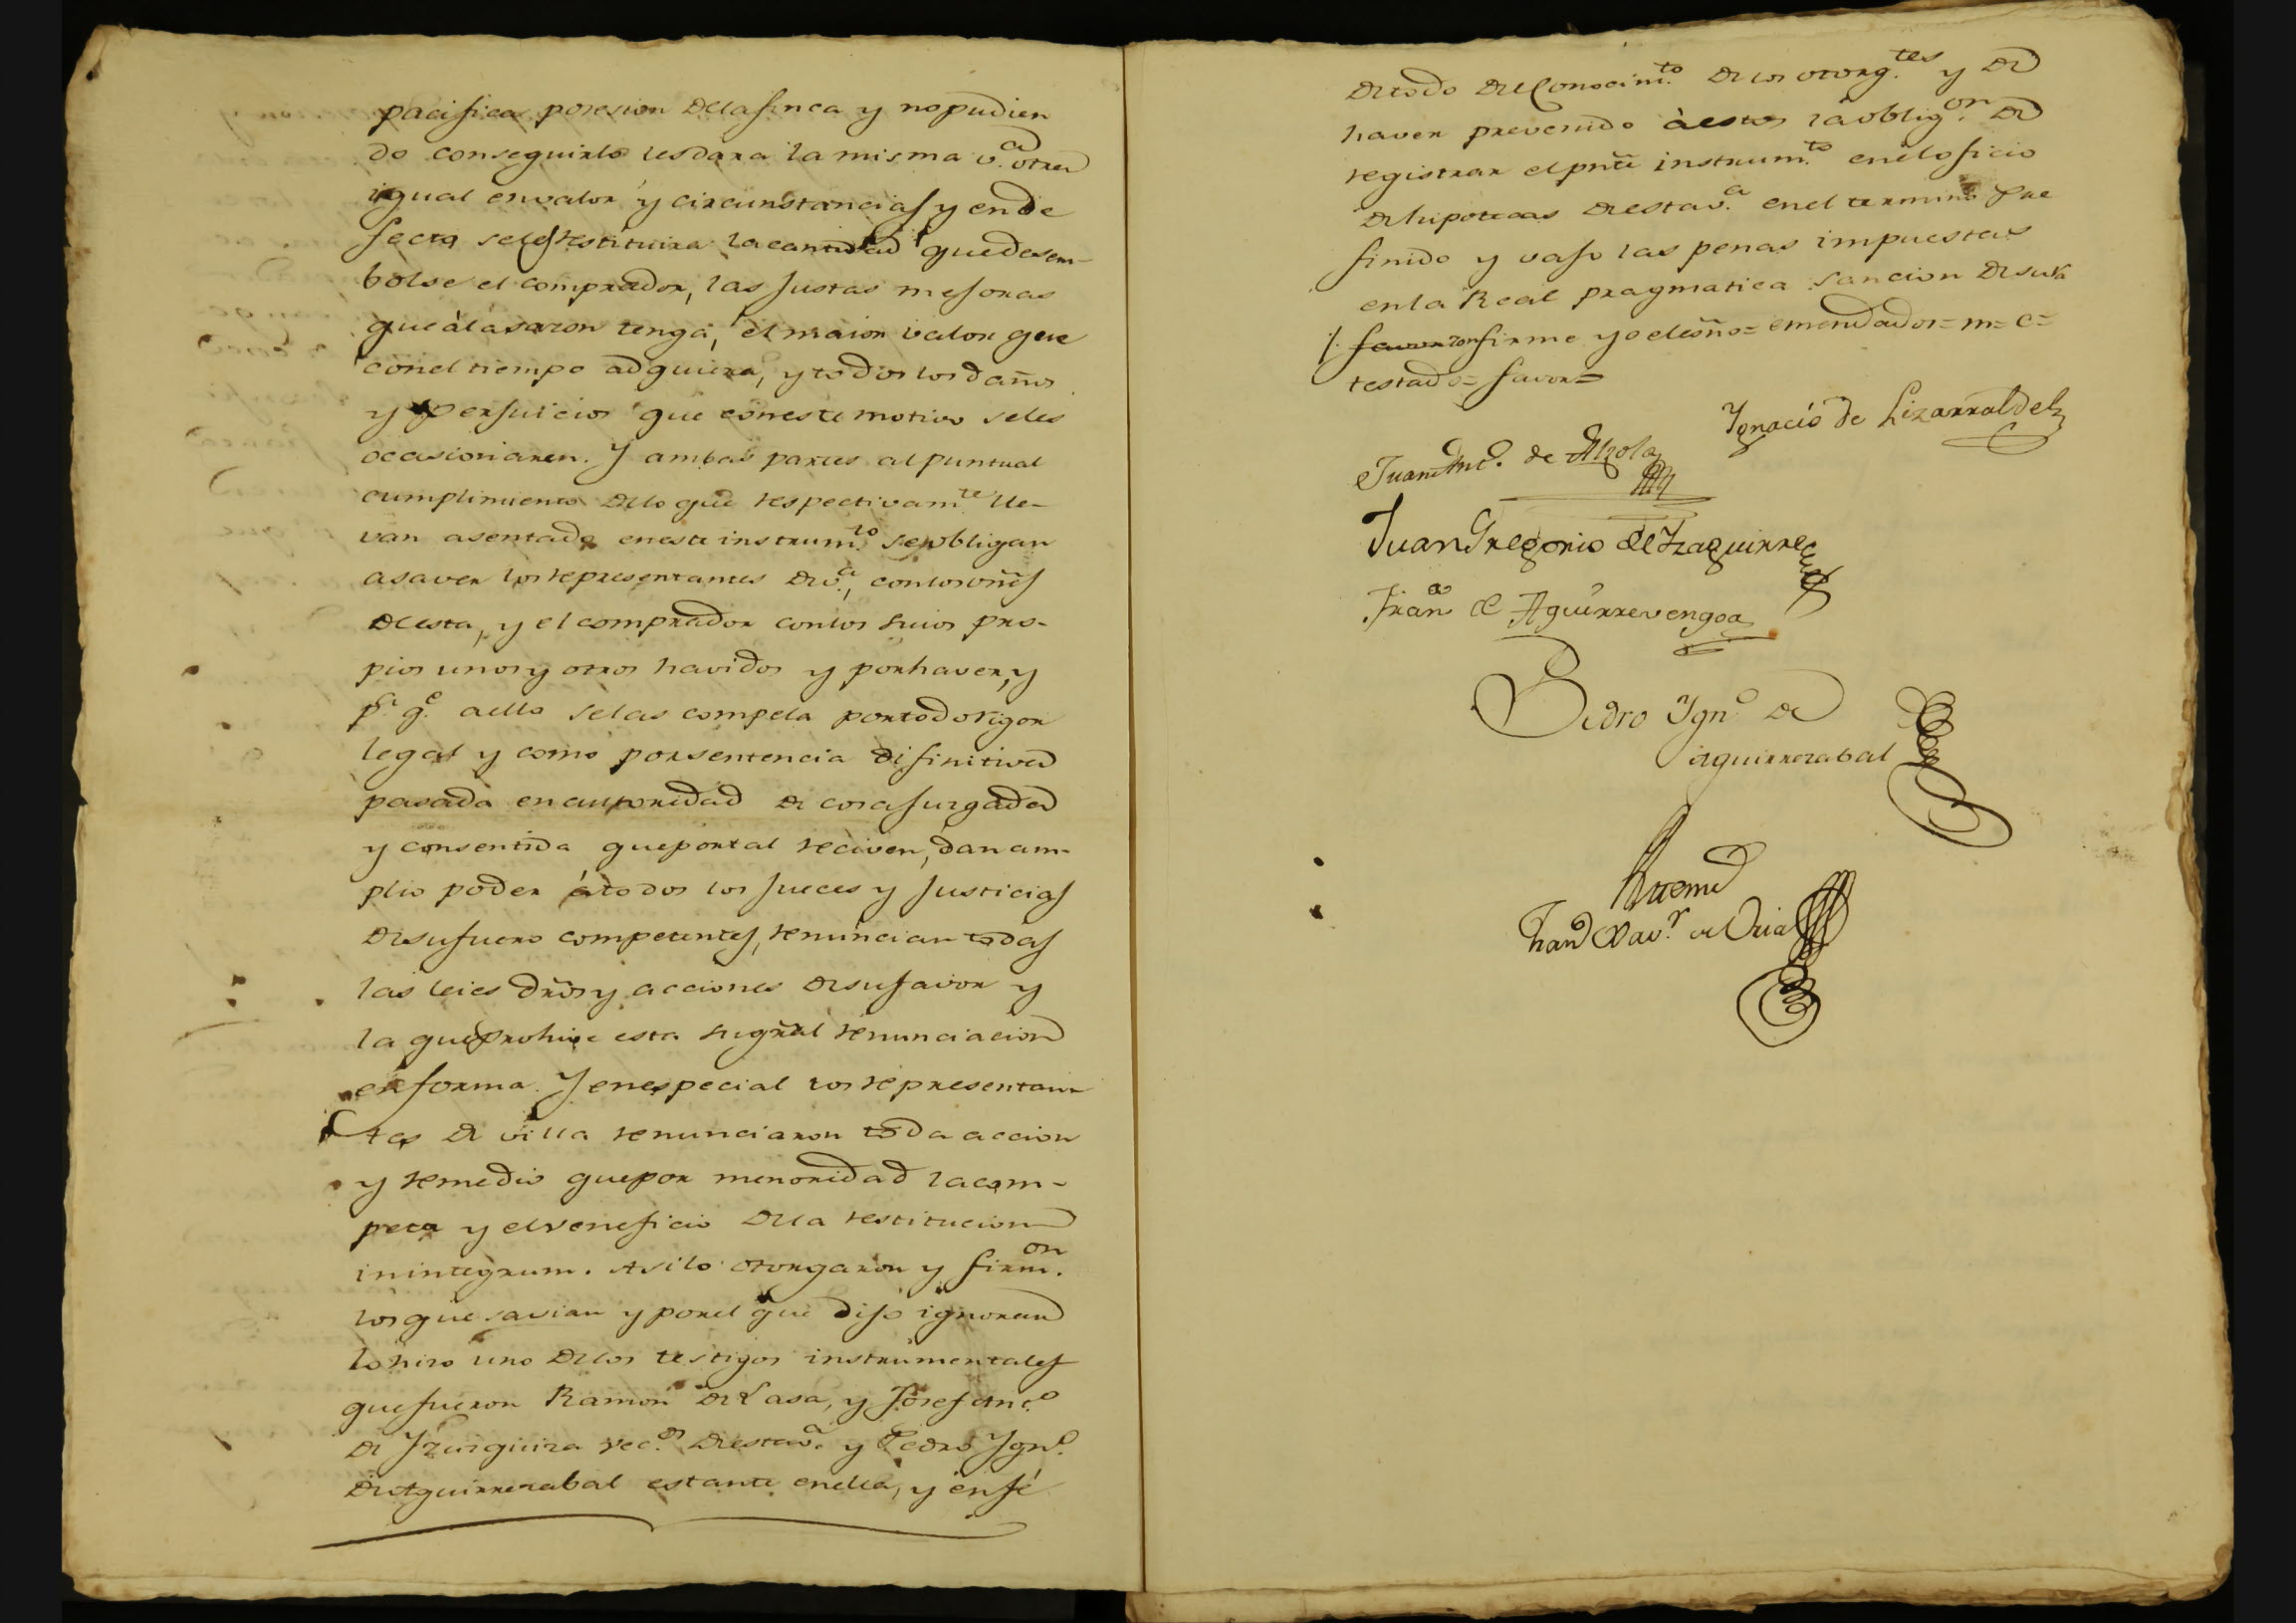 pacifica posesion de la finca y no pudien
do conseguirlo les dara la misma v.ª otra
igual en valor y circunstancias y en de
fecto se les restituira la cantidad que desem-
bolse el comprador, las justas mejoras
que á la sazon tenga, el maior valor que
con el tiempo adquiera, y todos los daños
y perjuicios que con este motivo se les
ocasionaren. Y ambas partes al puntual
cumplimiento de lo que respectivam.te lle-
van asentado en este instrum.to se obligan
a saver los representantes de v.ª, con los vñes
de esta, y el comprador con los suios pro-
pios unos y otros havidos y por haver, y
p.ª q.e a ello se las compela por todo rigor
legal y como por sentencia difinitiva
pasada en autoridad de cosa juzgada
y consentida que por tal reciven, dan am-
plio poder á todos los Jueces y Justicias
de su fuero competentes, renuncian todas
las leies dr̃os y acciones de su favor y
la que prohive esta su gr̃al renunciacion
en forma. Y en especial los representan-
tes de villa renunciaron toda accion
y remedio que por menoridad la com-
peta y el veneficio de la restitucion
in integrum. Asi lo otorgaron y firm.on
los que savian y por el que dijo ignorar
lo hizo uno de los testigos instrumentales
que fueron Ramon de Lasa, y Josef Ant.o
de Yzurguiza vec.os de esta v.ª y Pedro Ygn.o
de Aguirrezabal estante en ella, y en fé
de todo del Conocim.to de los otorg.tes y de
haver prevenido á estos la oblig.on de
registrar el pnte instrum.to en el oficio
de hipotecas de esta v.ª en el termino pre
finido y vajo las penas impuestas
en la Real pragmatica sancion de su rã
/. favor zon firme yo el esño= emendador= m= e=
testado= favor=
Ygnacio de Lizarralde
Juan Ant.o de Alzola
Juan Gregorio de Yzaguirre
Fran.co de Aguirrevengoa
Pedro Ygn.o de
Aguirrezabal
Ante mi
Fran.co Xav.r de Oria